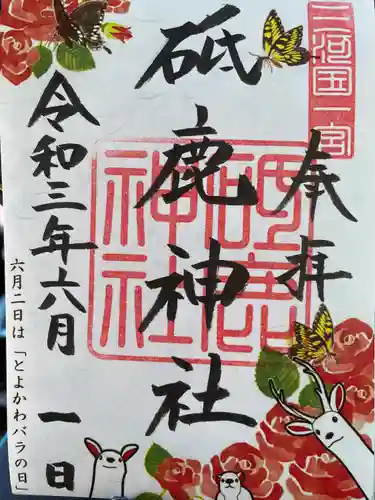 三河国一宮
奉拝
砥鹿神社
砥鹿神社
令和三年六月一日
六月二日は「とよかわバラの日」